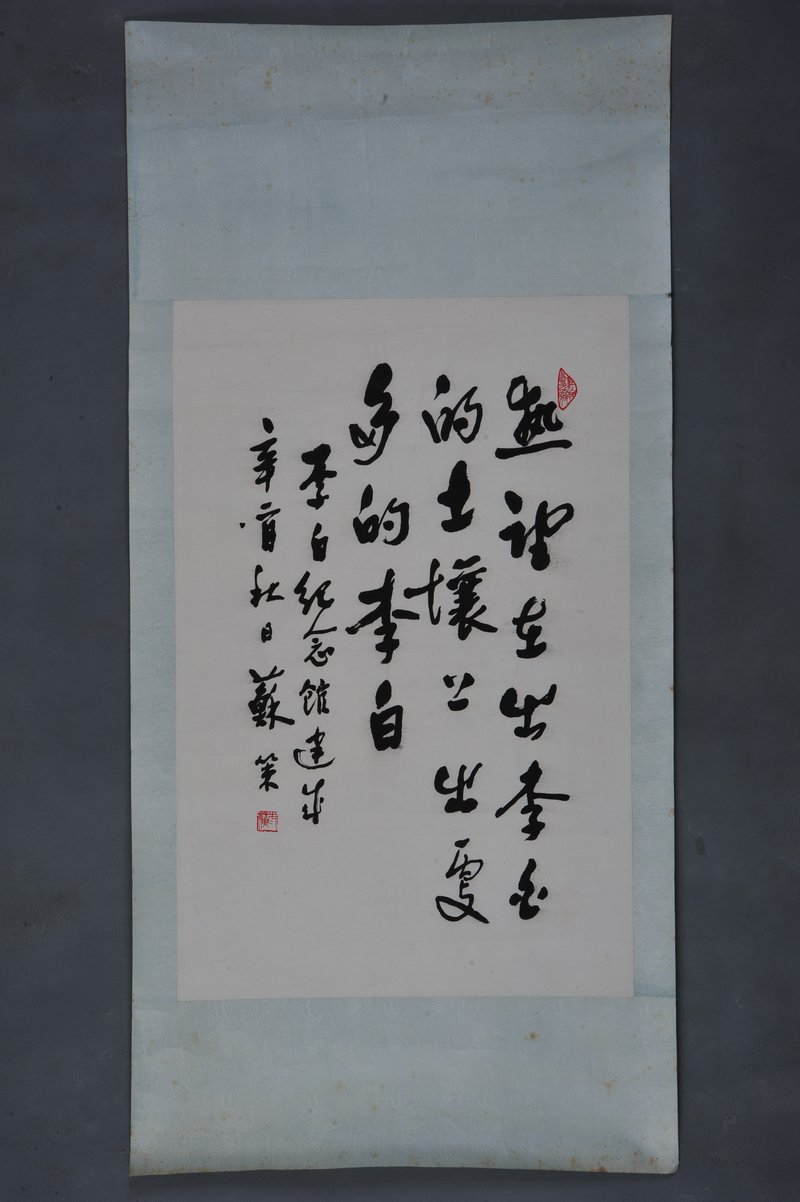 热望在出李白
的土壤上出更
多的李白
李白纪念馆建成
辛酉秋日 蘇策